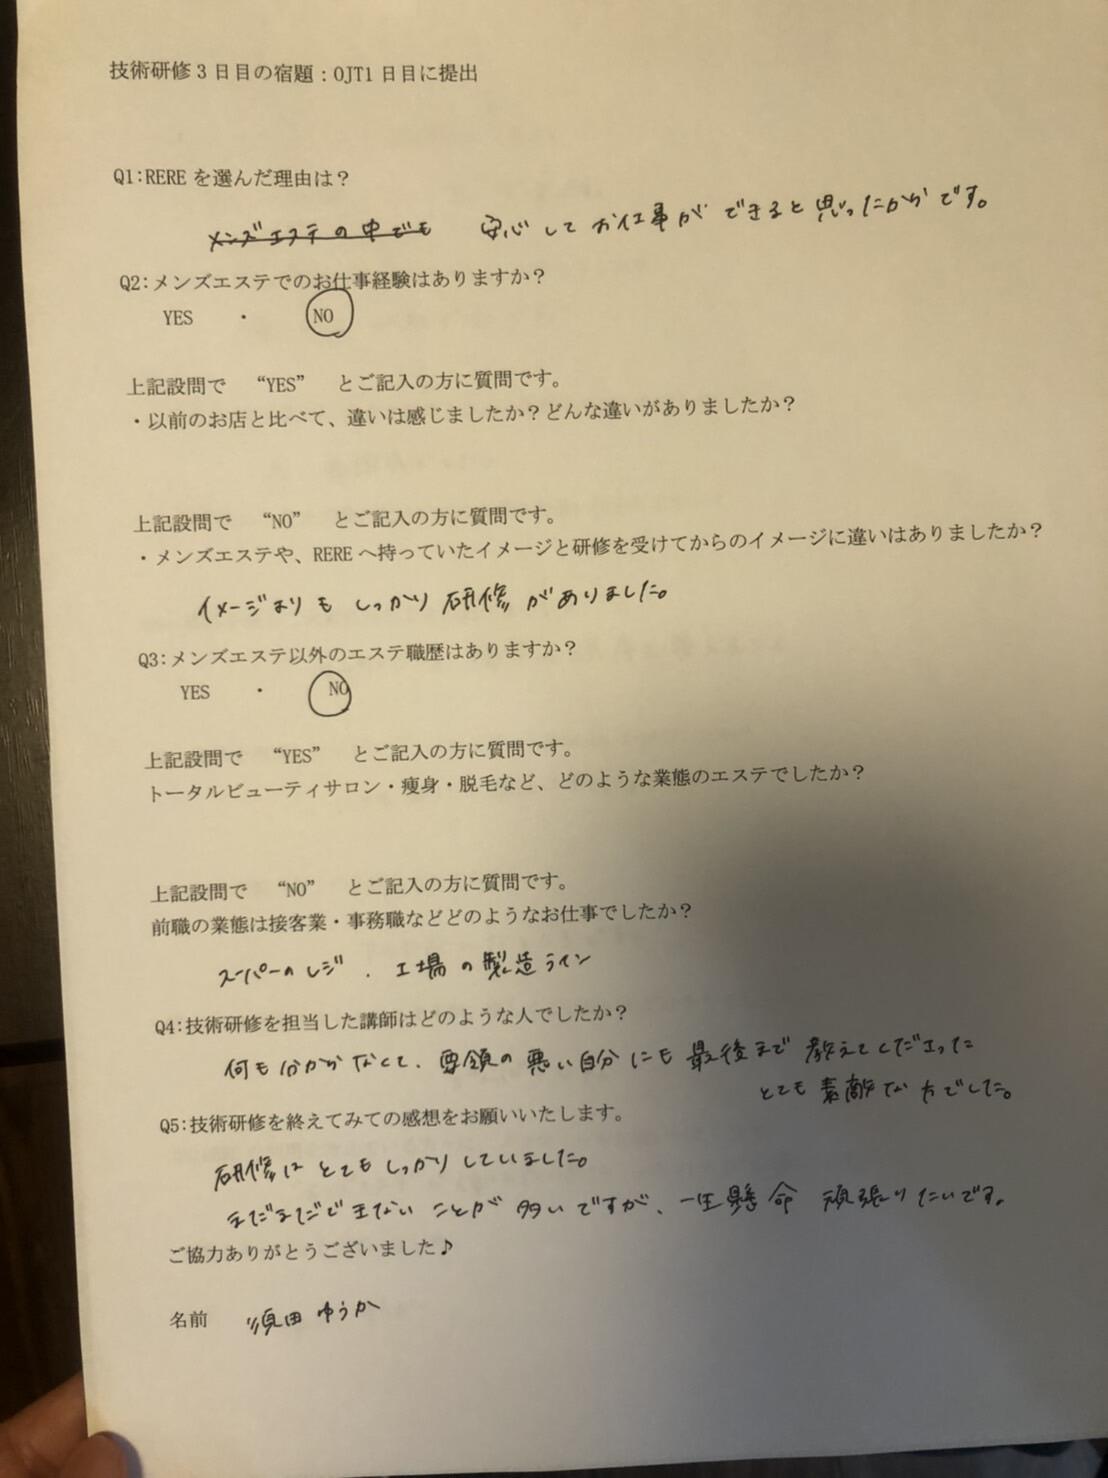 技術研修3日目の宿題：OJT1日目に提出
Q1:RERE を選んだ理由は？
メンズエステの中でも 安心してお仕事ができると思ったからです。
Q2:メンズエステでのお仕事経験はありますか？
YES ・ NO
上記設問で “YES” とご記入の方に質問です。
・以前のお店と比べて、違いは感じましたか？どんな違いがありましたか？
上記設問で “NO” とご記入の方に質問です。
・メンズエステや、RERE へ持っていたイメージと研修を受けてからのイメージに違いはありましたか？
イメージよりも しっかり 研修 がありました。
Q3:メンズエステ以外のエステ職歴はありますか？
YES ・ NO
上記設問で “YES” とご記入の方に質問です。
トータルビューティサロン・痩身・脱毛など、どのような業態のエステでしたか？
上記設問で “NO” とご記入の方に質問です。
前職の業態は接客業・事務職などどのようなお仕事でしたか？
スーパーのレジ、工場の製造ライン
Q4:技術研修を担当した講師はどのような人でしたか？
何も分からなくて、要領の悪い自分にも最後まで教えてくださった
とても素敵な方でした。
Q5:技術研修を終えてみての感想をお願いいたします。
研修はとてもしっかりしていました。
まだまだできないことが多いですが、一生懸命 頑張りたいです。
ご協力ありがとうございました♪
名前 須田 ゆうか